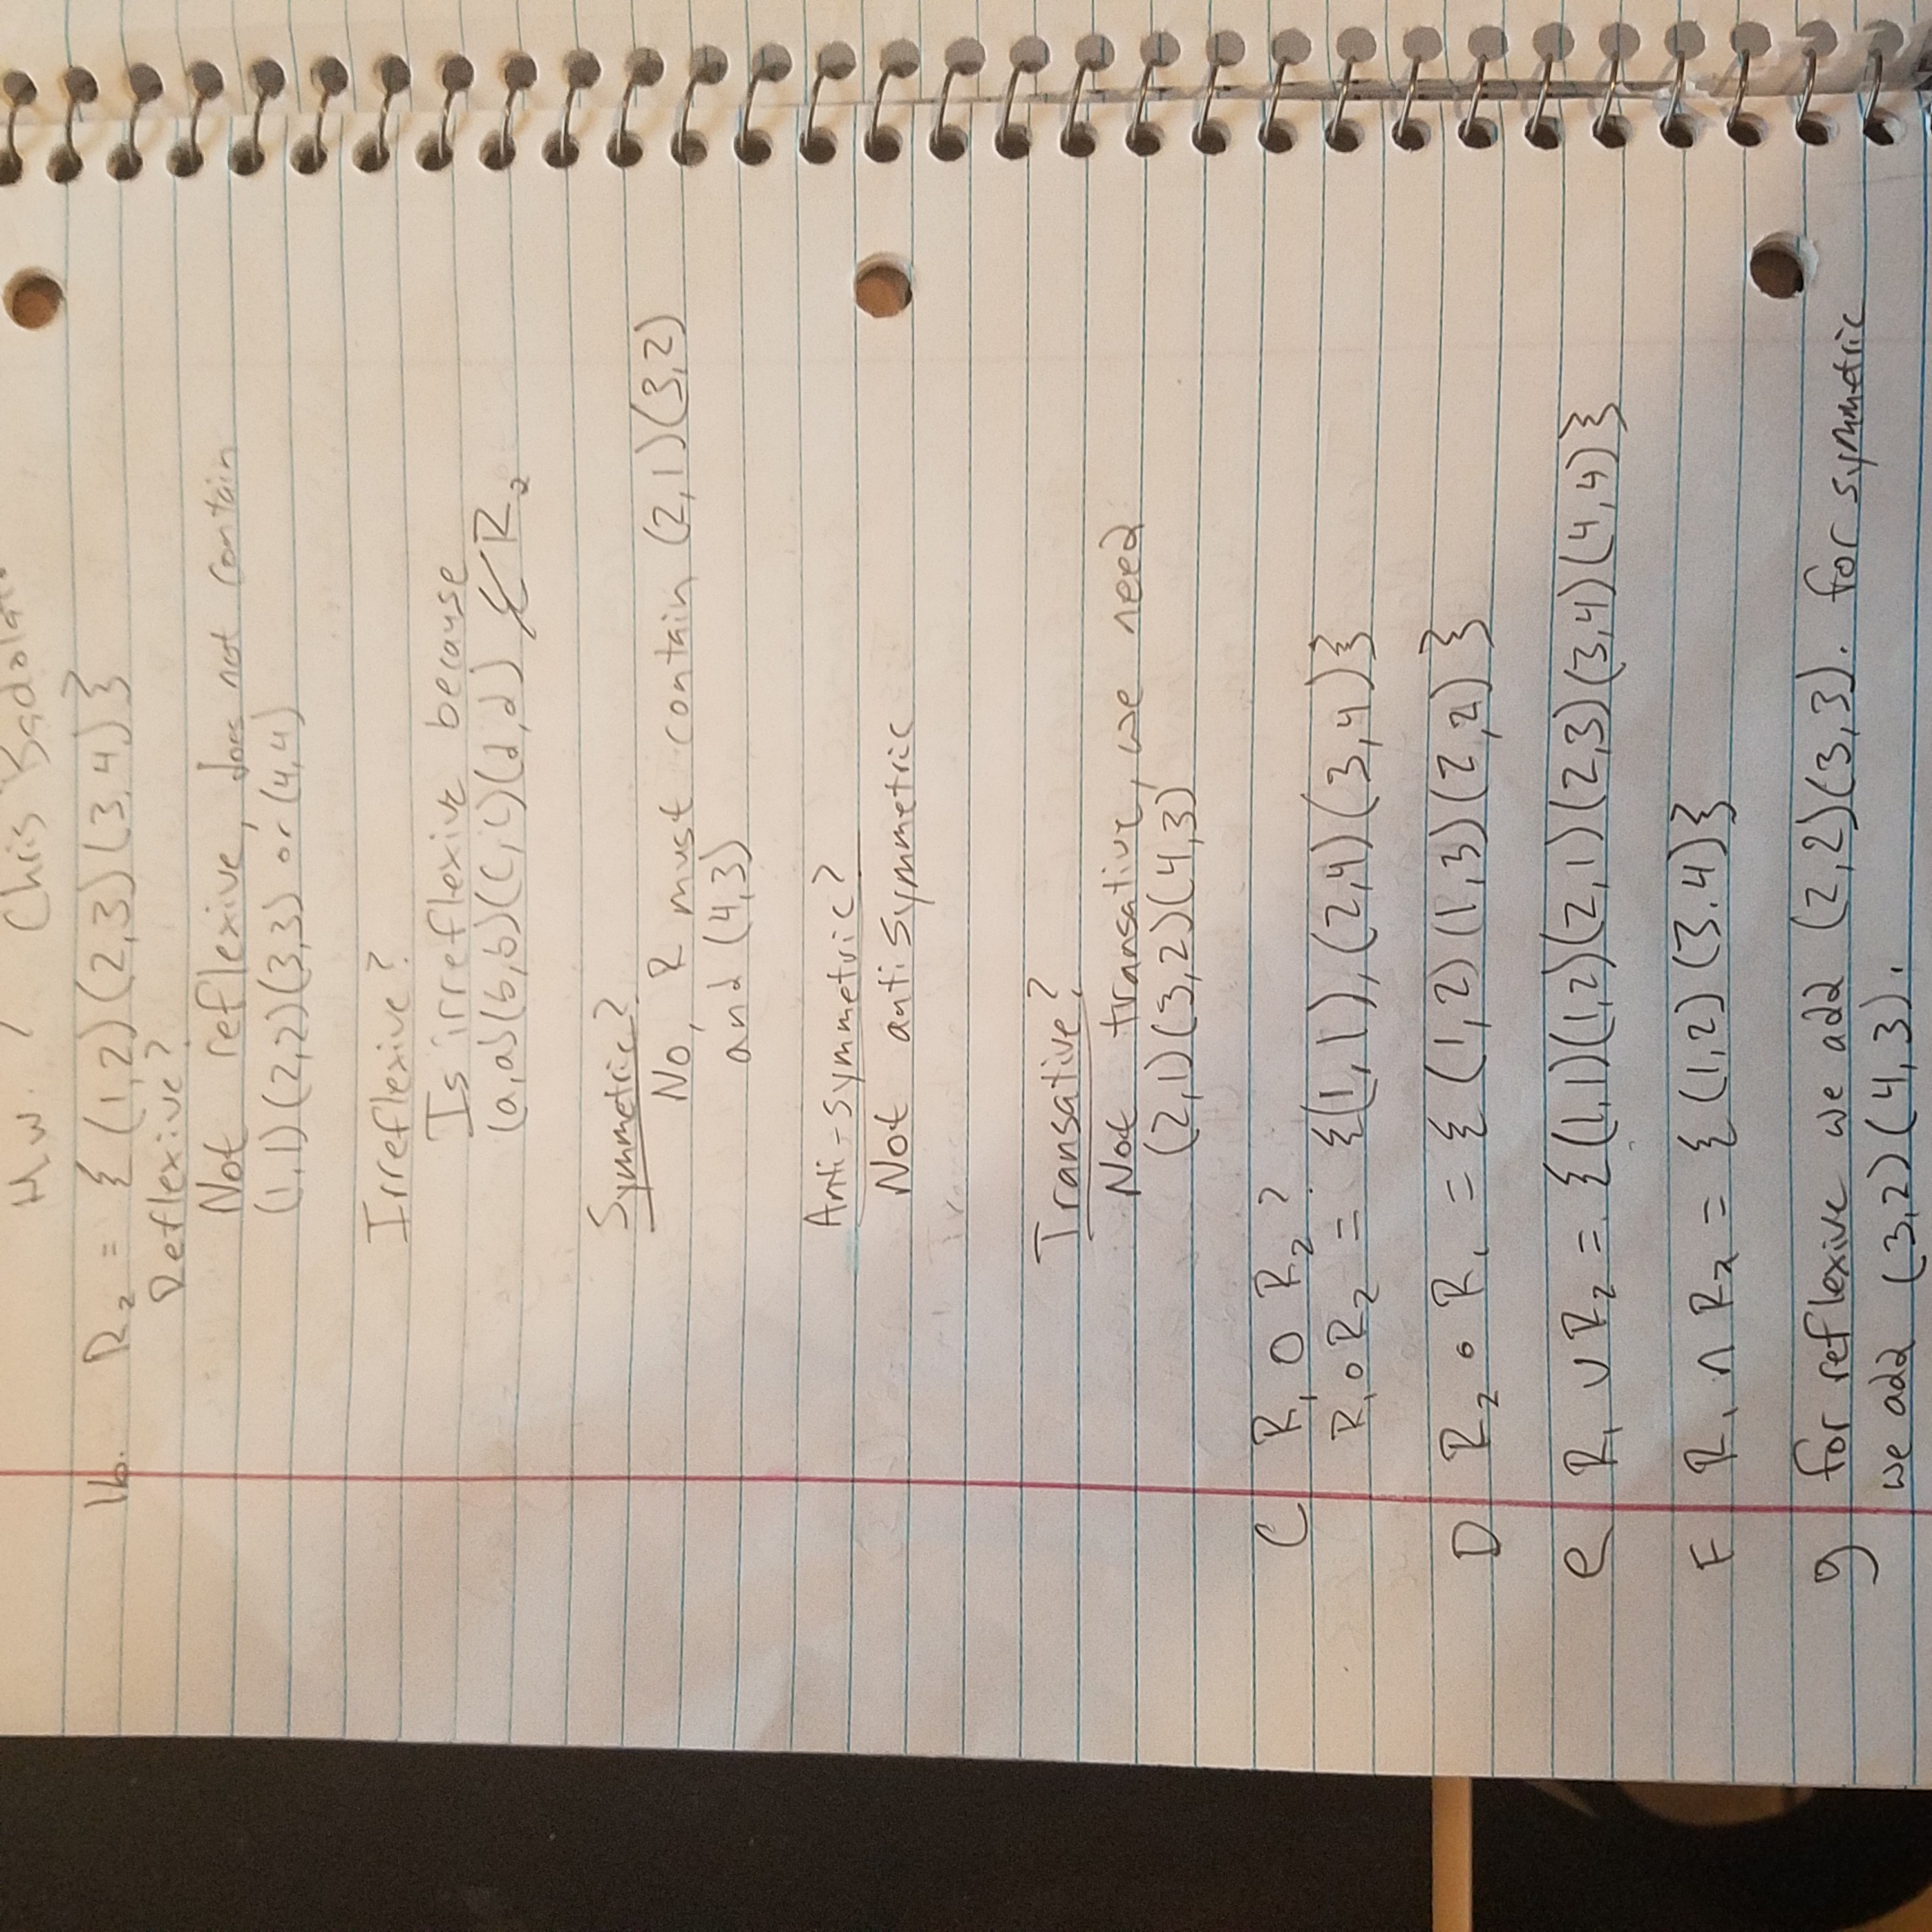 Hw. 1 Chris
1b. R₂ = {(1,2)(2,3)(3,4)}
Reflexive?
Not reflexive, does not contain
(1,1)(2,2)(3,3) or (4,4)
Irreflexive?
Is irreflexive because
(a,a)(b,b)(c,c)(d,d) ∉ R₂
Symmetric?
No, R must contain (2,1)(3,2)
and (4,3)
Anti-symmetric?
Not antisymmetric
Transative?
Not transative, we need
(2,1)(3,2)(4,3)
C R₁ O R₂?
R₁ o R₂ = {(1,1),(2,4)(3,4)}
D R₂ o R₁ = {(1,2)(1,3)(2,2)}
e R₁ ∪ R₂ = {(1,1)(1,2)(2,1)(2,3)(3,4)(4,4)}
F R₁ ∩ R₂ = {(1,2)(3.4)}
g for reflexive we add (2,2)(3,3). for symmetric
we add (3,2)(4,3).